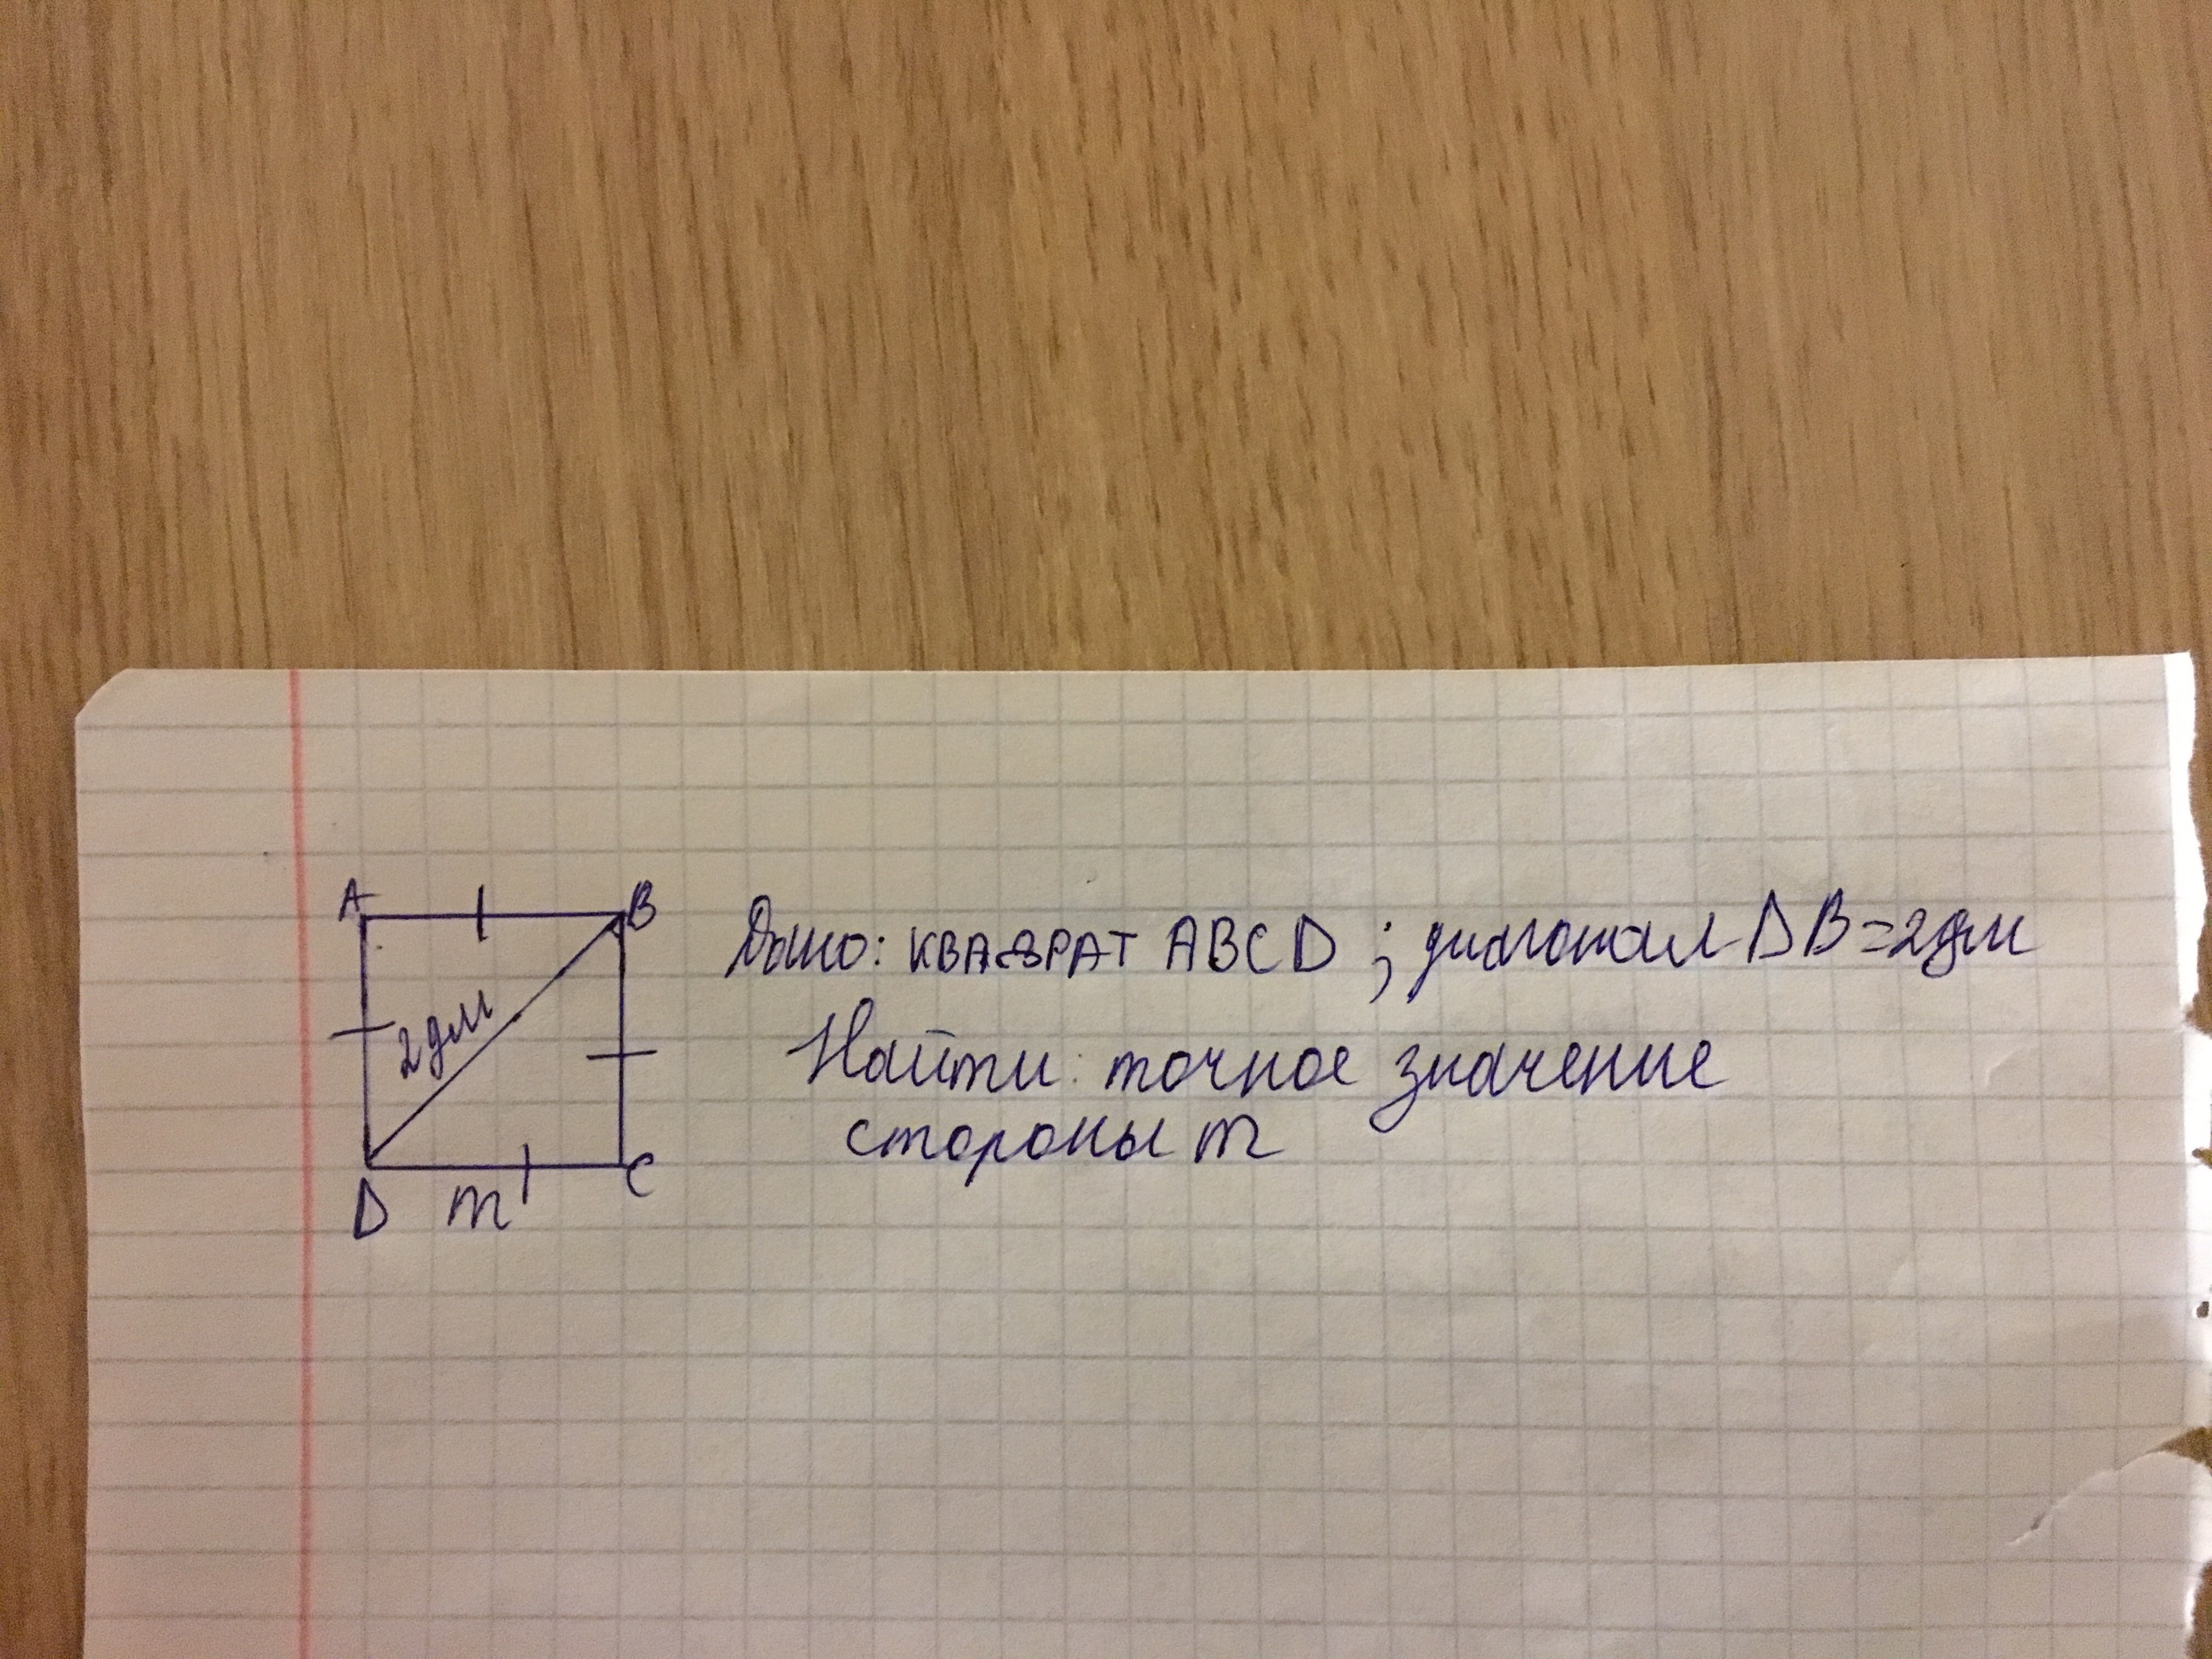 A
B
2дм
D
m
C
Дано: КВАДРАТ ABCD ; диагонал DB=2дм
Найти: точное значение
стороны m